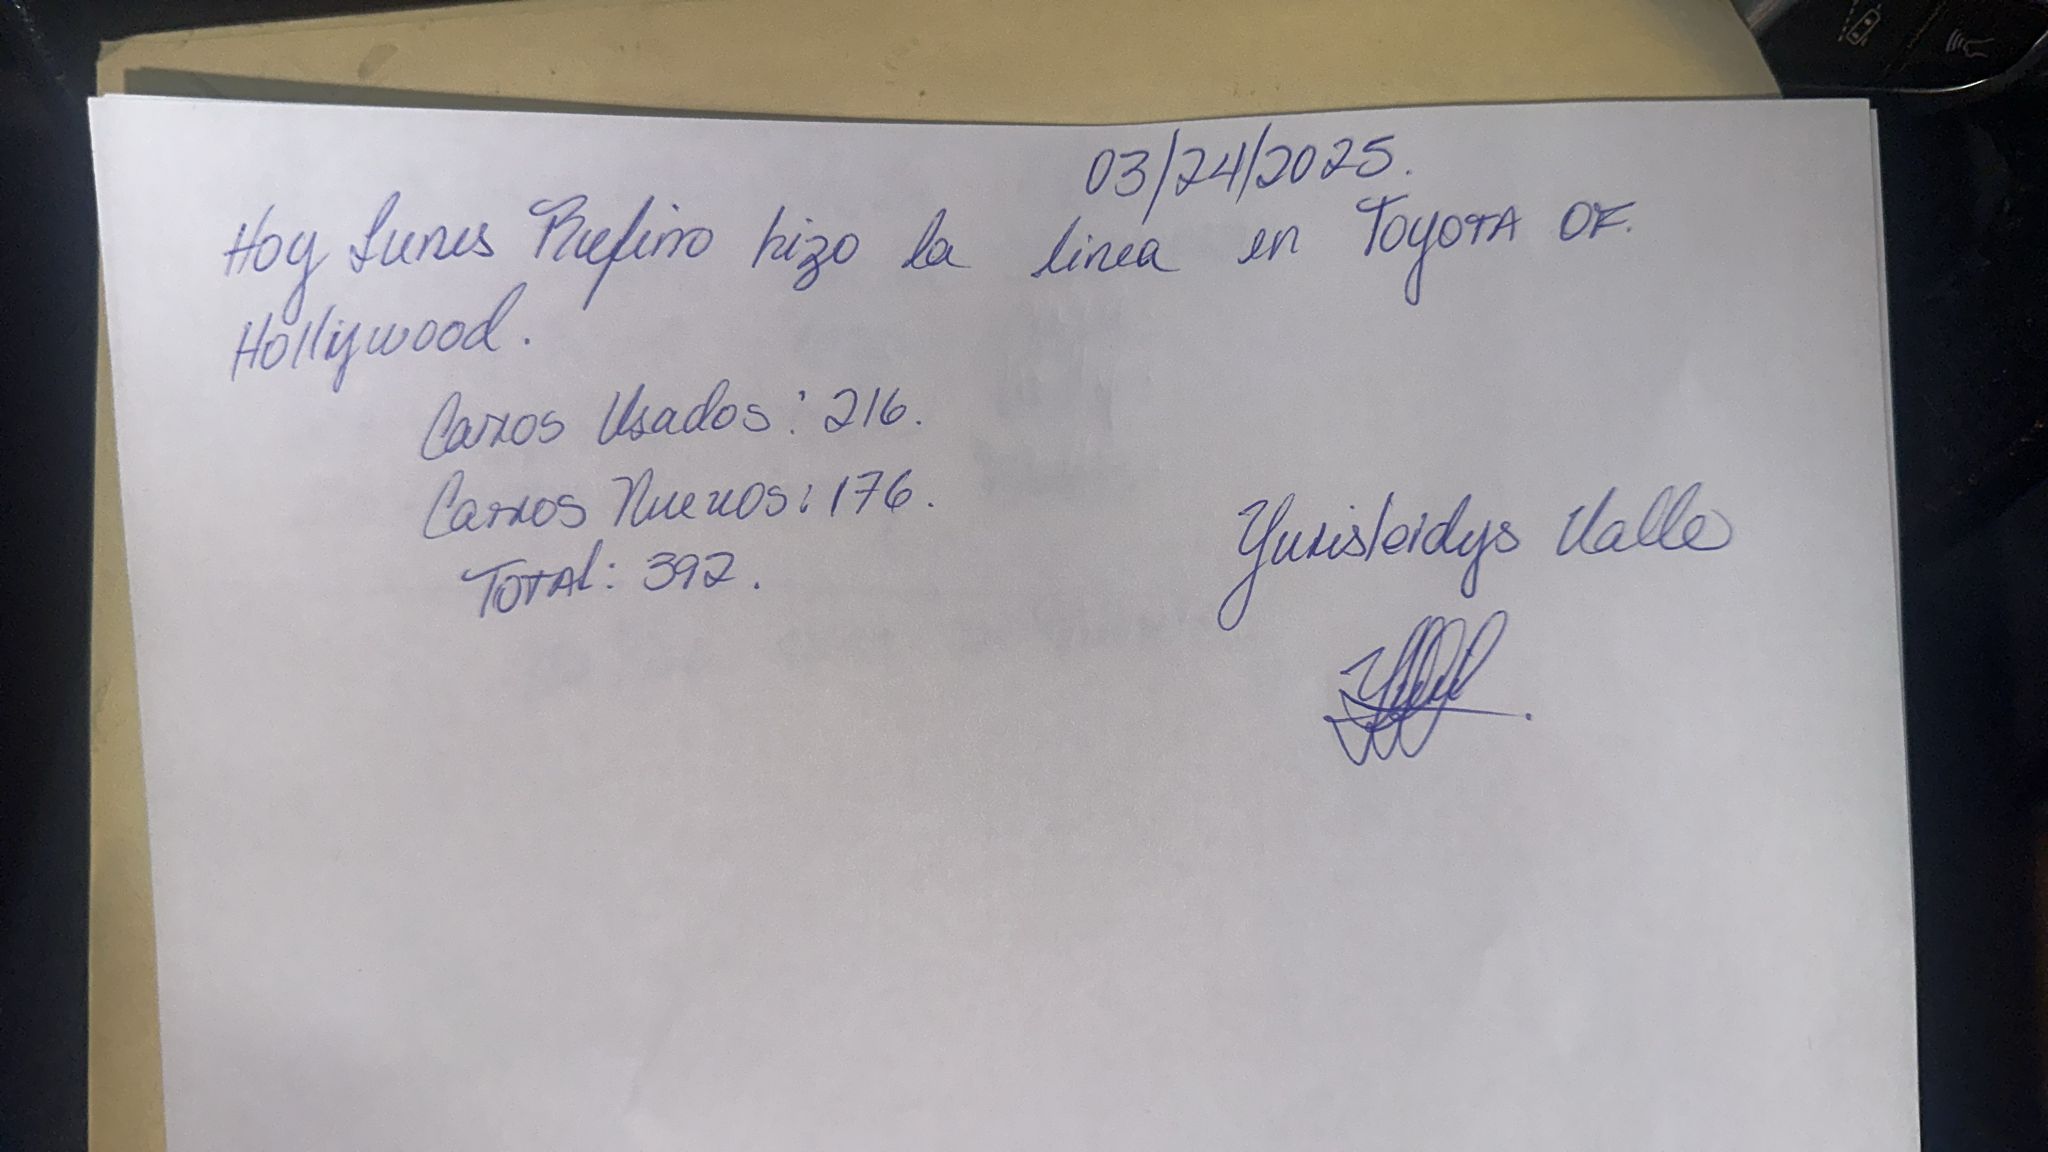 03/24/2025.
Hoy Lunes Rufino hizo la linea en Toyota OF.
Hollywood.
Carros Usados: 216.
Carros Nuevos: 176.
Total: 392.
Yurisleidys Valle